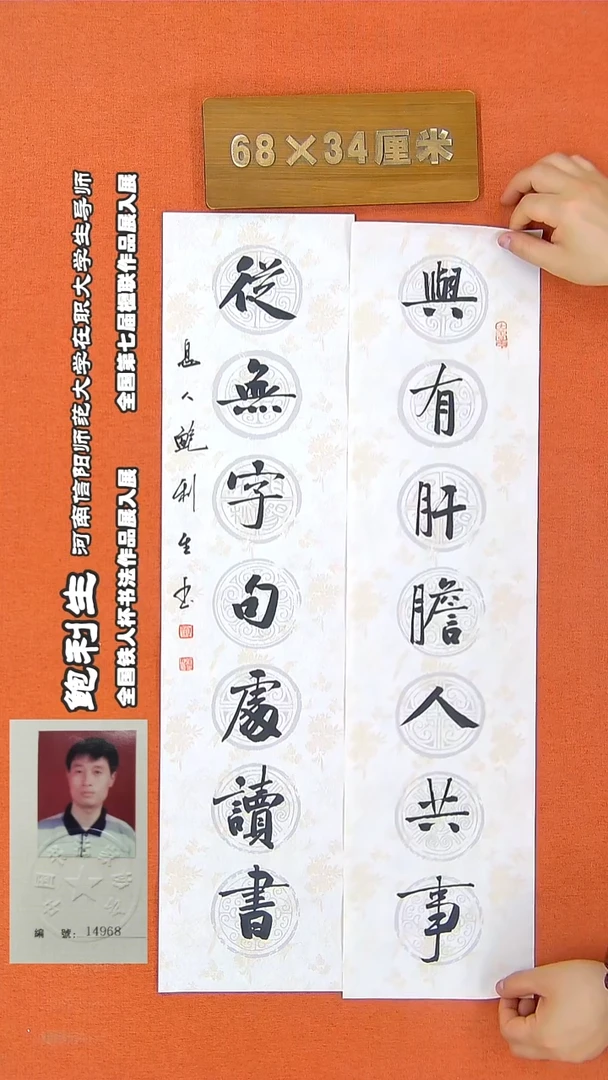 68×34厘米
與有肝膽人共事
從無字句處讀書
息人鮑利生书
鲍利生 河南信阳师范大学在职大学生导师
全国铁人杯书法作品展入展 全国第七届楹联作品展入展
編 號: 14968